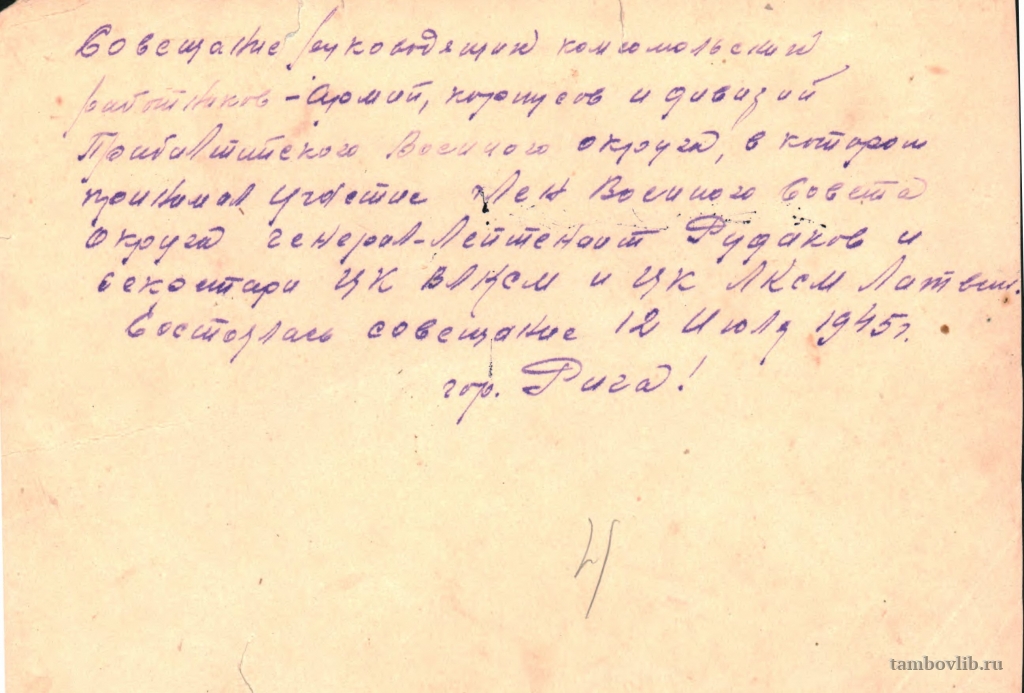 Совещание руководящий комсомольский
работников – Армий, корпусов и дивизий
Прибалтитского Военного округа, в котором
принимал участие Член Военного Совета
округа генерал-Лейтенант Рудаков и
секретари ЦК ВЛКСМ и ЦК ЛКСМ Латвии.
Состоялась совещание 12 Июля 1945 г.
гор. Рига!
4
tambovlib.ru